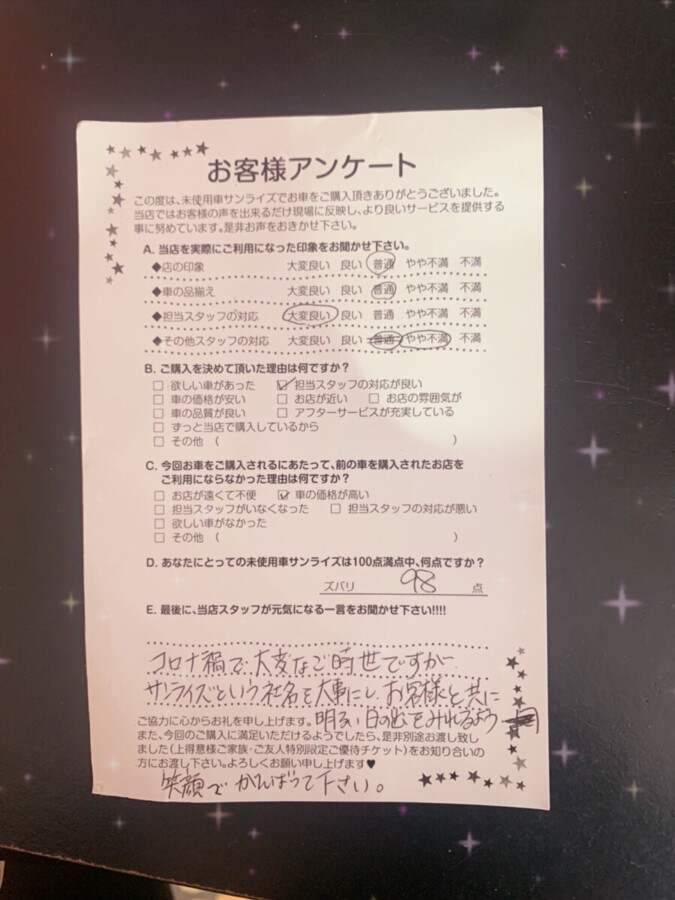 お客様アンケート
この度は、未使用車サンライズでお車をご購入頂きありがとうございました。
当店ではお客様の声を出来るだけ現場に反映し、より良いサービスを提供する
事に努めています。是非お声をおきかせ下さい。
A. 当店を実際にご利用になった印象をお聞かせ下さい。
◆店の印象 大変良い 良い 普通 やや不満 不満
◆車の品揃え 大変良い 良い 普通 やや不満 不満
◆担当スタッフの対応 大変良い 良い 普通 やや不満 不満
◆その他スタッフの対応 大変良い 良い 普通 やや不満 不満
B. ご購入を決めて頂いた理由は何ですか？
□ 欲しい車があった ☑ 担当スタッフの対応が良い
□ 車の価格が安い □ お店が近い □ お店の雰囲気が
□ 車の品質が良い □ アフターサービスが充実している
□ ずっと当店で購入しているから
□ その他（ ）
C. 今回お車をご購入されるにあたって、前の車を購入されたお店を
ご利用にならなかった理由は何ですか？
□ お店が遠くて不便 ☑ 車の価格が高い
□ 担当スタッフがいなくなった □ 担当スタッフの対応が悪い
□ 欲しい車がなかった
□ その他（ ）
D. あなたにとっての未使用車サンライズは100点満点中、何点ですか？
ズバリ 98 点
E. 最後に、当店スタッフが元気になる一言をお聞かせ下さい!!!!
コロナ禍で大変なご時世ですが
サンライズという社名を大事にし、お客様と共に
ご協力に心からお礼を申し上げます。 明るい日の出をみれるよう
また、今回のご購入に満足いただけるようでしたら、是非別途お渡し致し
ました(上得意様ご家族・ご友人特別限定ご優待チケット)をお知り合いの
方にお渡し下さい。よろしくお願い申し上げます♥
笑顔でがんばって下さい。